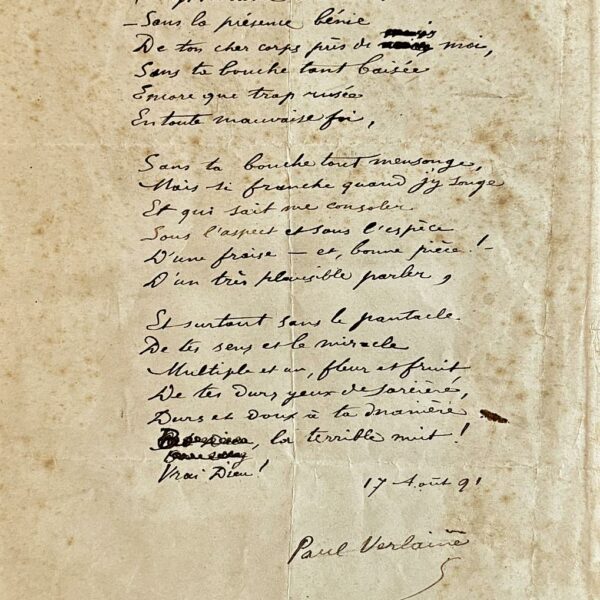 - Sans la présence bénie
De ton cher corps près de moi,
Sans ta bouche tant baisée
Encore que trop rusée
En toute mauvaise foi,
Sans ta bouche tout mensonge,
Mais si franche quand j'y songe
Et qui sait me consoler
Sous l'aspect et sous l'espèce
D'une fraise – et, bonne pièce! –
D'un très plausible parler,
Et surtout sans le pantacle
De tes sens et le miracle
Multiple et un, fleur et fruit
De tes durs yeux de sorcière,
Durs et doux à ta manière
, la terrible nuit!
Vrai Dieu!
17 Août 91
Paul Verlaine